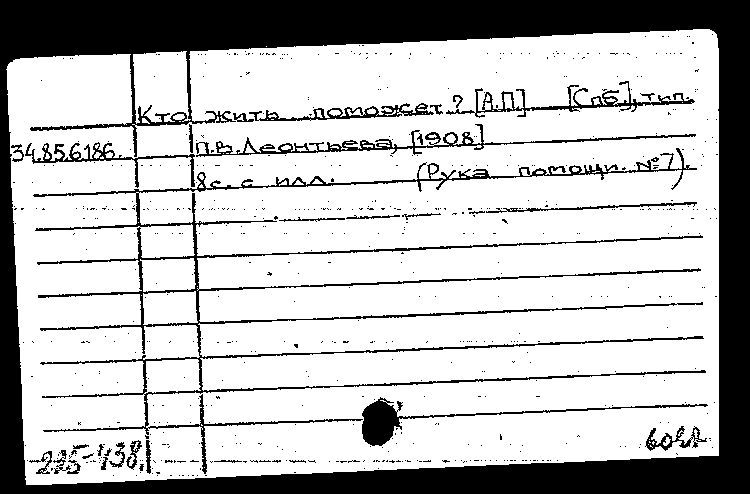 Кто жить поможет? [А.П.] [Спб.], тип.
34.85.6186. П.В. Леонтьева, [1908]
8с. с илл. (Рука помощи. №7).
225-438.